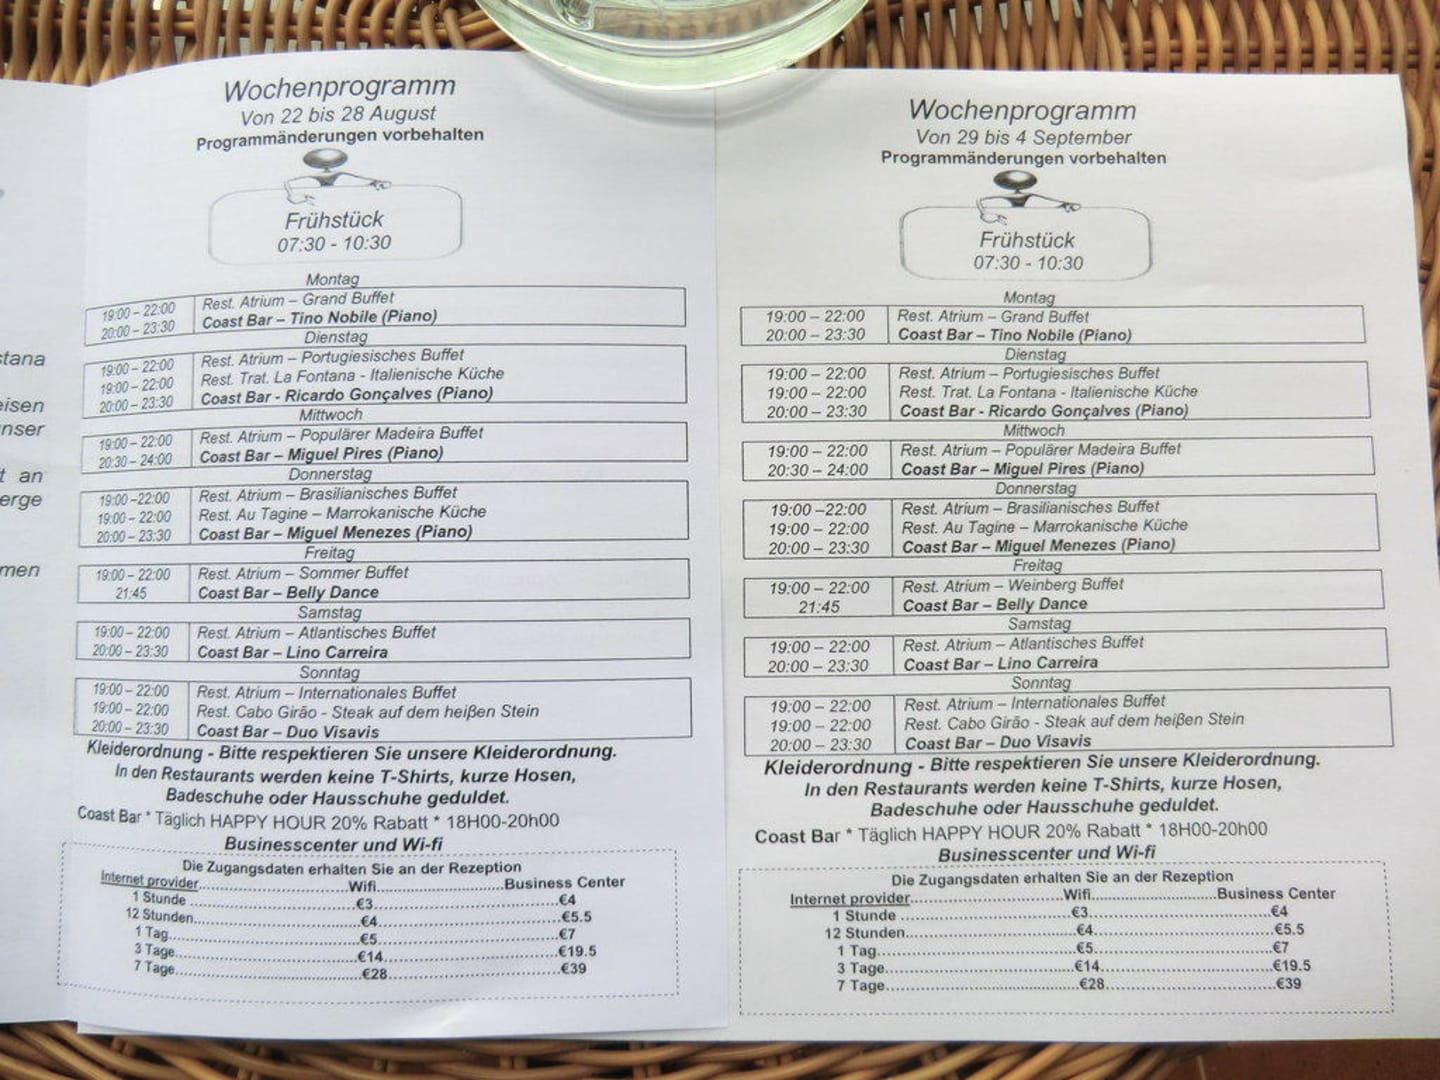 stana
eisen
nser
t an
erge
men
Wochenprogramm
Von 22 bis 28 August
Programmänderungen vorbehalten
Frühstück
07:30 - 10:30
Montag
19:00 – 22:00 Rest. Atrium – Grand Buffet
20:00 – 23:30 Coast Bar – Tino Nobile (Piano)
Dienstag
19:00 – 22:00 Rest. Atrium – Portugiesisches Buffet
19:00 – 22:00 Rest. Trat. La Fontana - Italienische Küche
20:00 – 23:30 Coast Bar - Ricardo Gonçalves (Piano)
Mittwoch
19:00 – 22:00 Rest. Atrium – Populärer Madeira Buffet
20:30 – 24:00 Coast Bar – Miguel Pires (Piano)
Donnerstag
19:00 –22:00 Rest. Atrium – Brasilianisches Buffet
19:00 – 22:00 Rest. Au Tagine – Marrokanische Küche
20:00 – 23:30 Coast Bar – Miguel Menezes (Piano)
Freitag
19:00 – 22:00 Rest. Atrium – Sommer Buffet
21:45 Coast Bar – Belly Dance
Samstag
19:00 – 22:00 Rest. Atrium – Atlantisches Buffet
20:00 – 23:30 Coast Bar – Lino Carreira
Sonntag
19:00 – 22:00 Rest. Atrium – Internationales Buffet
19:00 – 22:00 Rest. Cabo Girão - Steak auf dem heiβen Stein
20:00 – 23:30 Coast Bar – Duo Visavis
Kleiderordnung - Bitte respektieren Sie unsere Kleiderordnung.
In den Restaurants werden keine T-Shirts, kurze Hosen,
Badeschuhe oder Hausschuhe geduldet.
Coast Bar * Täglich HAPPY HOUR 20% Rabatt * 18H00-20h00
Businesscenter und Wi-fi
Die Zugangsdaten erhalten Sie an der Rezeption
Internet provider..............................Wifi..........................Business Center
1 Stunde ..............................€3..............................€4
12 Stunden..............................€4..............................€5.5
1 Tag..............................€5..............................€7
3 Tage..............................€14..............................€19.5
7 Tage..............................€28..............................€39
Wochenprogramm
Von 29 bis 4 September
Programmänderungen vorbehalten
Frühstück
07:30 - 10:30
Montag
19:00 – 22:00 Rest. Atrium – Grand Buffet
20:00 – 23:30 Coast Bar – Tino Nobile (Piano)
Dienstag
19:00 – 22:00 Rest. Atrium – Portugiesisches Buffet
19:00 – 22:00 Rest. Trat. La Fontana - Italienische Küche
20:00 – 23:30 Coast Bar - Ricardo Gonçalves (Piano)
Mittwoch
19:00 – 22:00 Rest. Atrium – Populärer Madeira Buffet
20:30 – 24:00 Coast Bar – Miguel Pires (Piano)
Donnerstag
19:00 –22:00 Rest. Atrium – Brasilianisches Buffet
19:00 – 22:00 Rest. Au Tagine – Marrokanische Küche
20:00 – 23:30 Coast Bar – Miguel Menezes (Piano)
Freitag
19:00 – 22:00 Rest. Atrium – Weinberg Buffet
21:45 Coast Bar – Belly Dance
Samstag
19:00 – 22:00 Rest. Atrium – Atlantisches Buffet
20:00 – 23:30 Coast Bar – Lino Carreira
Sonntag
19:00 – 22:00 Rest. Atrium – Internationales Buffet
19:00 – 22:00 Rest. Cabo Girão - Steak auf dem heiβen Stein
20:00 – 23:30 Coast Bar – Duo Visavis
Kleiderordnung - Bitte respektieren Sie unsere Kleiderordnung.
In den Restaurants werden keine T-Shirts, kurze Hosen,
Badeschuhe oder Hausschuhe geduldet.
Coast Bar * Täglich HAPPY HOUR 20% Rabatt * 18H00-20h00
Businesscenter und Wi-fi
Die Zugangsdaten erhalten Sie an der Rezeption
Internet provider..............................Wifi..........................Business Center
1 Stunde ..............................€3..............................€4
12 Stunden..............................€4..............................€5.5
1 Tag..............................€5..............................€7
3 Tage..............................€14..............................€19.5
7 Tage..............................€28..............................€39